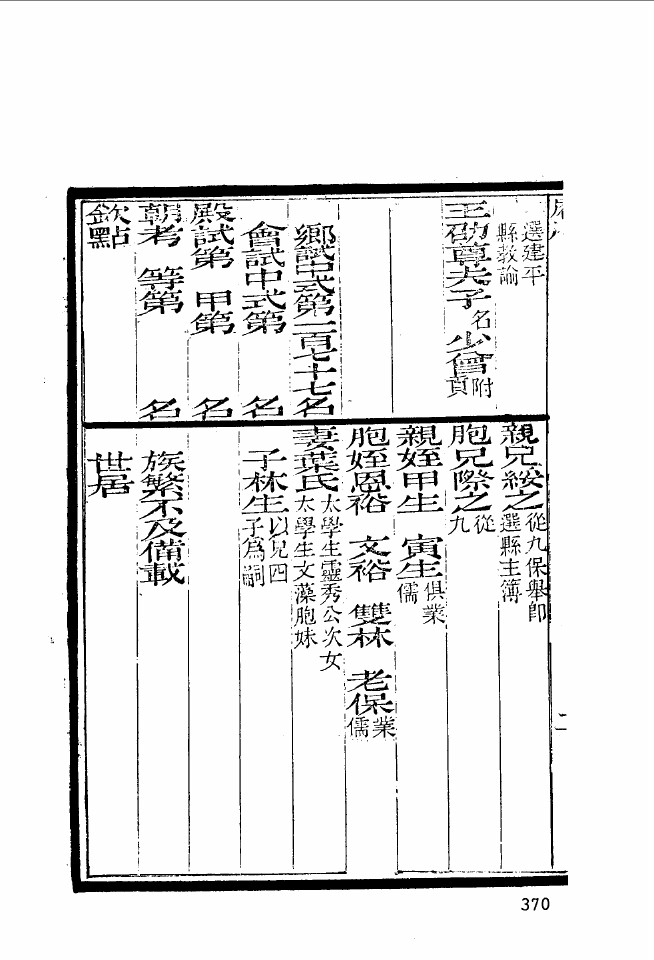 選建平
縣教諭
王劭尊夫子 名少曾 附貢
鄉試中式第一百七十七名
會試中式第 名
殿試第 甲第 名
朝考 等第 名
欽點
親兄綏之 從九保舉即
選縣主簿
胞兄際之 從九
親姪甲生 寅生 俱業儒
胞姪恩裕 文裕 雙林 老保 業儒
妻葉氏 太學生靈秀公次女
太學生文藻胞妹
子林生 以兄四
子為嗣
族繁不及備載
世居
二
370